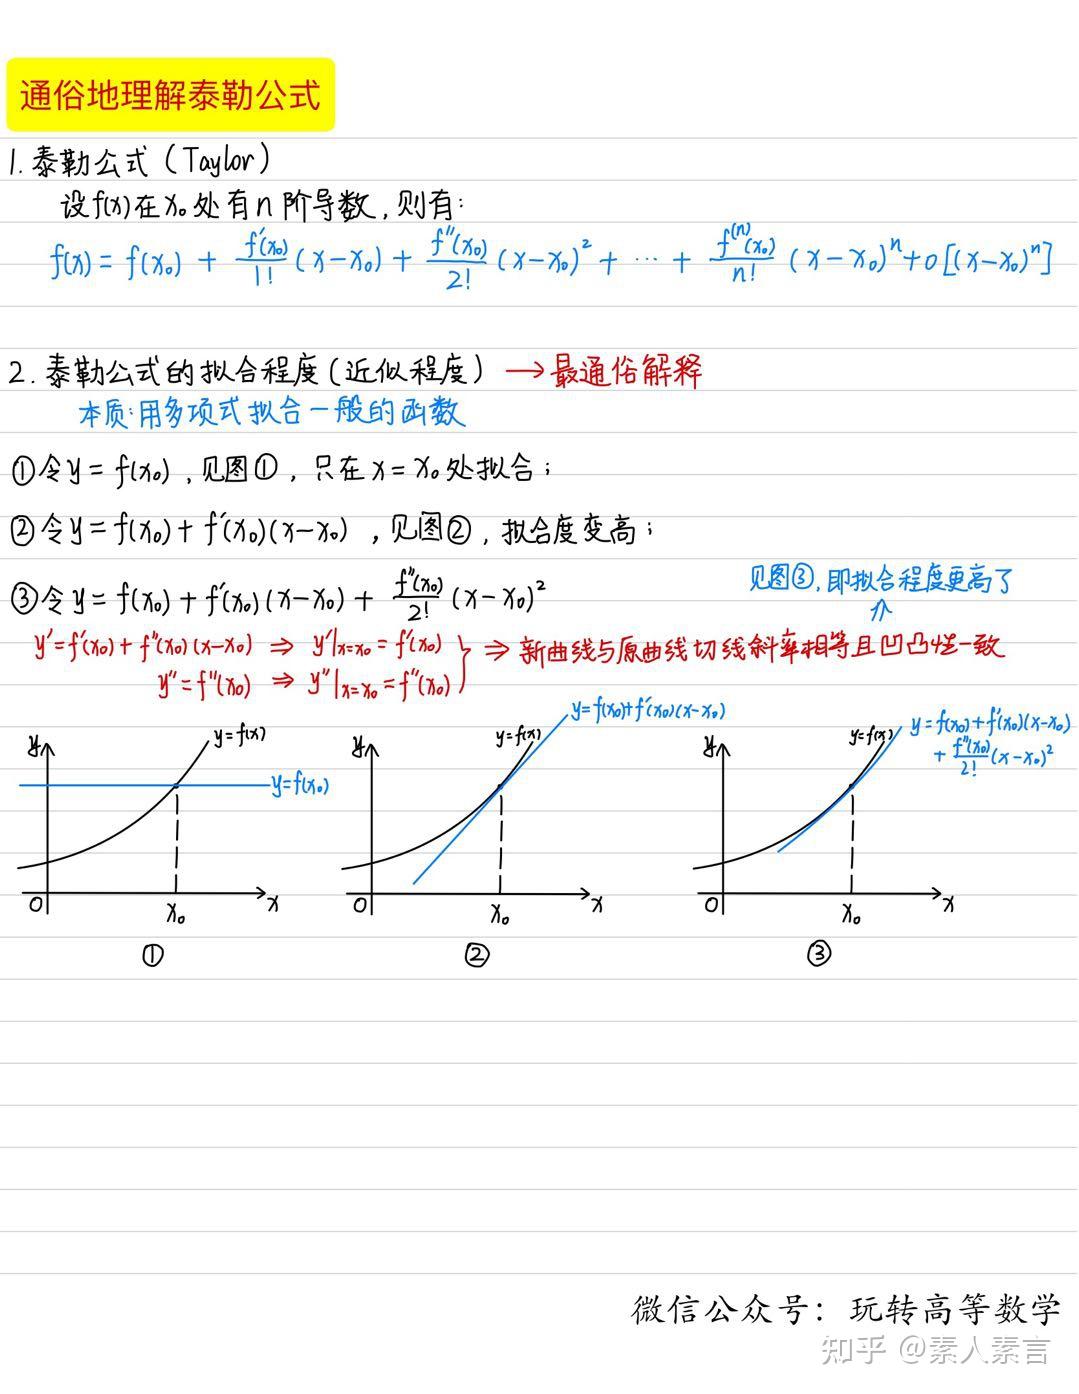 通俗地理解泰勒公式
1. 泰勒公式（Taylor）
设f(x)在x₀处有n阶导数，则有：
f(x) = f(x₀) + f'(x₀)/1! (x-x₀) + f''(x₀)/2! (x-x₀)² + ⋯ + f⁽ⁿ⁾(x₀)/n! (x-x₀)ⁿ + o[(x-x₀)ⁿ]
2. 泰勒公式的拟合程度(近似程度) → 最通俗解释
本质:用多项式拟合一般的函数
①令y = f(x₀)，见图①，只在x = x₀处拟合；
②令y = f(x₀) + f'(x₀)(x-x₀)，见图②，拟合度变高；
③令y = f(x₀) + f'(x₀)(x-x₀) + f''(x₀)/2! (x-x₀)²
见图③，即拟合程度更高了
⇑
y' = f'(x₀) + f''(x₀)(x-x₀) ⇒ y'|x=x₀ = f'(x₀)
y'' = f''(x₀) ⇒ y''|x=x₀ = f''(x₀)
} ⇒ 新曲线与原曲线切线斜率相等且凹凸性一致
y
y=f(x)
y=f(x₀)
O
x₀
x
①
y
y=f(x)
y=f(x₀)+f'(x₀)(x-x₀)
O
x₀
x
②
y
y=f(x)
y=f(x₀)+f'(x₀)(x-x₀)
+ f''(x₀)/2! (x-x₀)²
O
x₀
x
③
微信公众号：玩转高等数学
知乎 @素人素言